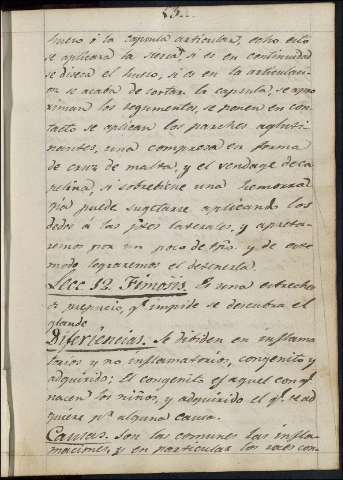 hueso ó la capsula articular, echo esto
se aplicara la sierra, si es en continuidad
se diseca el hueso, si es en la articulacion
se acaba de cortar la capsula, se apro
ximan los tegumentos, se ponen en con-
tacto se aplican los parches agluti-
nantes, una compresa en forma
de cruz de malta, y el vendage de ca
pelina, si sobrebiene una hemorra
gia puede sugetarse aplicando los
dedos á las ptes laterales, y apreta-
remos por un poco de tpo. y de este
modo lograremos el detenerla.
Lecc 12. Fimosis. Es una estreches
de prepucio, q.e impide se descubra el
glande
Diferiencias. Se dibiden en inflama
torios y no inflamatorios, congenito y
adquirido; El congenito es aquel con q.e
nacen los niños, y adquirido el q.e se ad
quiere p.r alguna causa.
Causas. Son las comunes las infla-
maciones, y en particular los